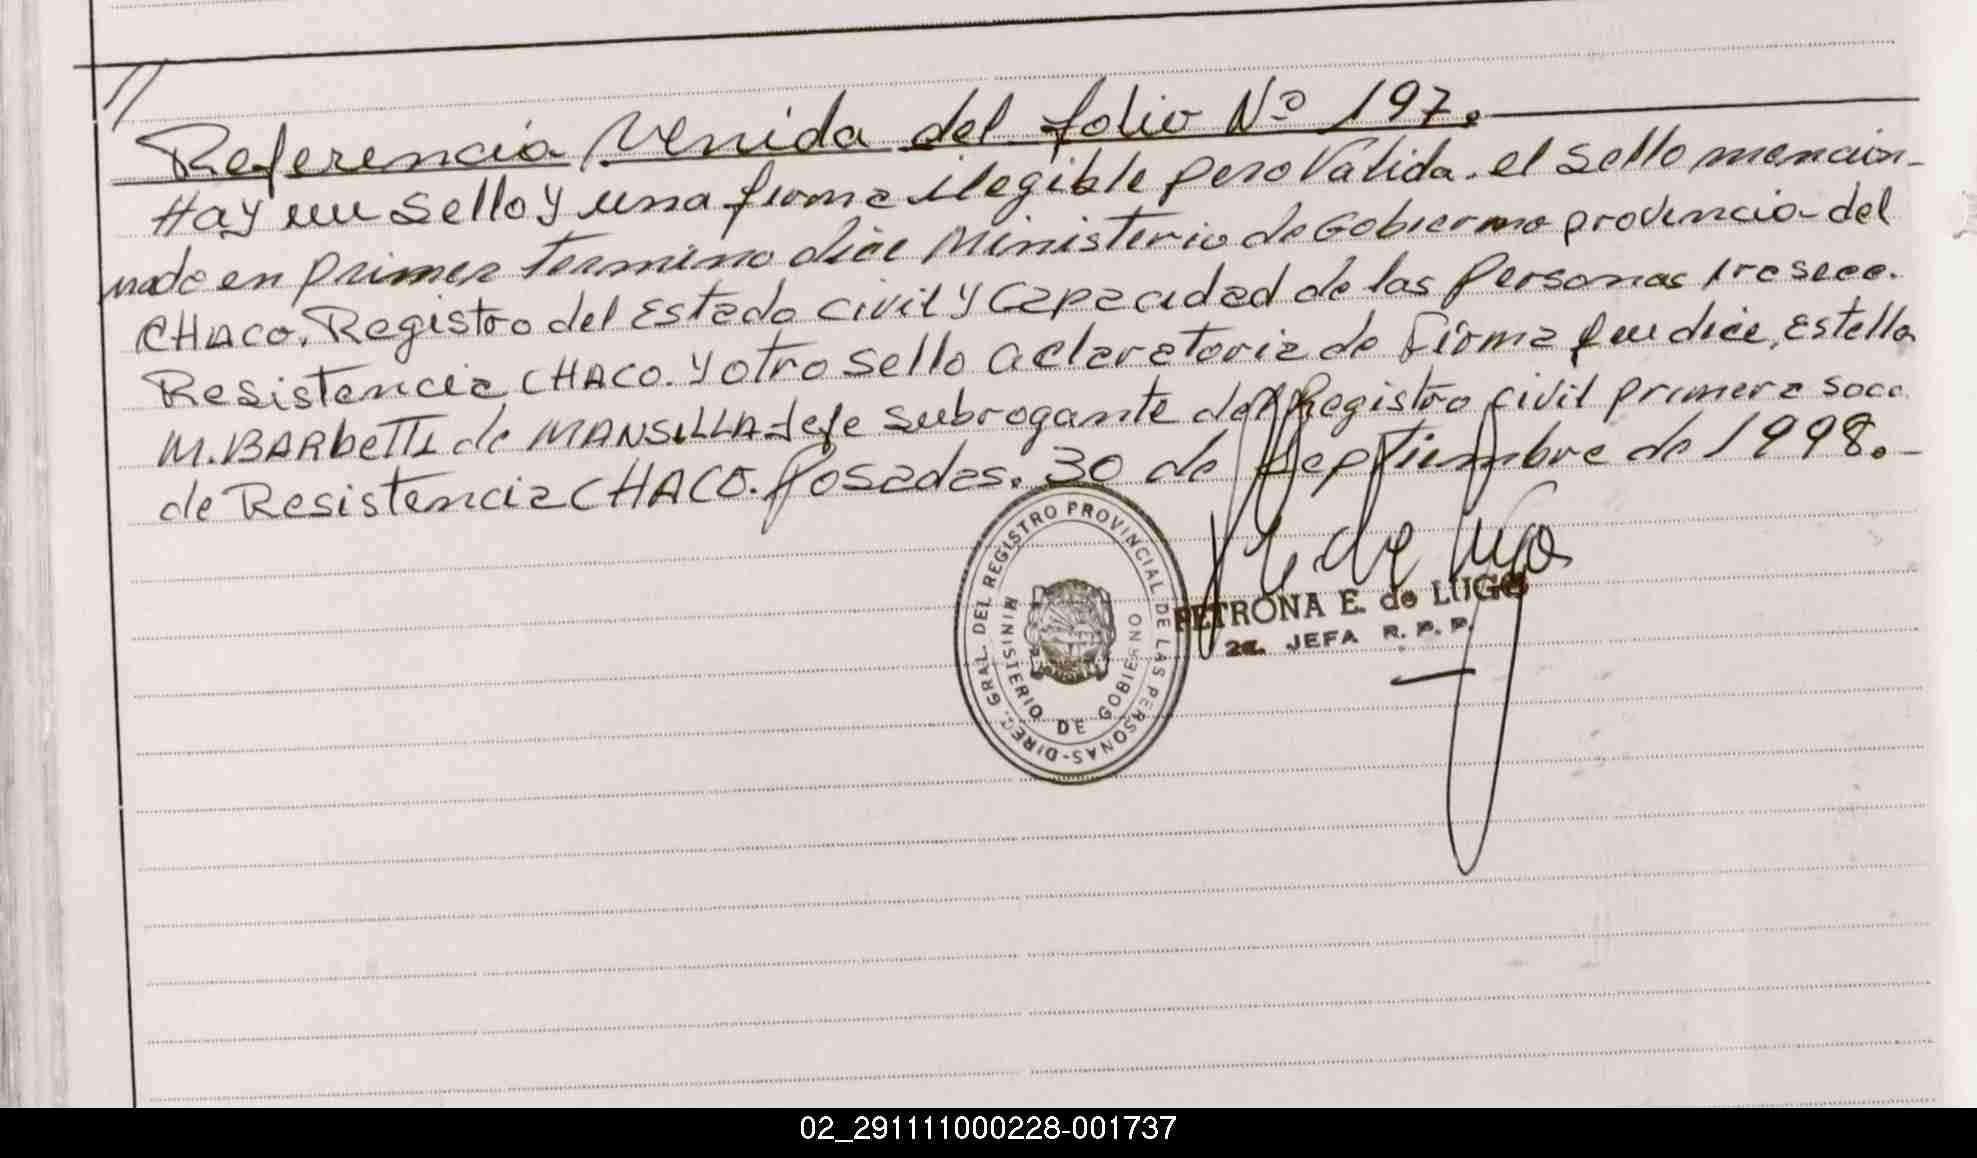 //
Referencia Venida del folio Nº 197.
Hay un sello y una firma ilegible pero Valida. el sello mencion-
nado en primer termino dice Ministerio de Gobierno provincia del
CHACO. Registro del Estado civil y Capacidad de las Personas 1ra secc.
Resistencia CHACO. y otro sello aclaratoria de Firma que dice, Estella
M. BARbeTTI de MANSILLA Jefe subrogante del Registro civil primera secc.
de Resistencia CHACO. Posadas. 30 de Septiembre de 1998.-
DIREC. GRAL. DEL REGISTRO PROVINCIAL DE LAS PERSONAS-
MINISTERIO DE GOBIERNO
PETRONA E. de LUGO
2a. JEFA R. P. P.
02_291111000228-001737